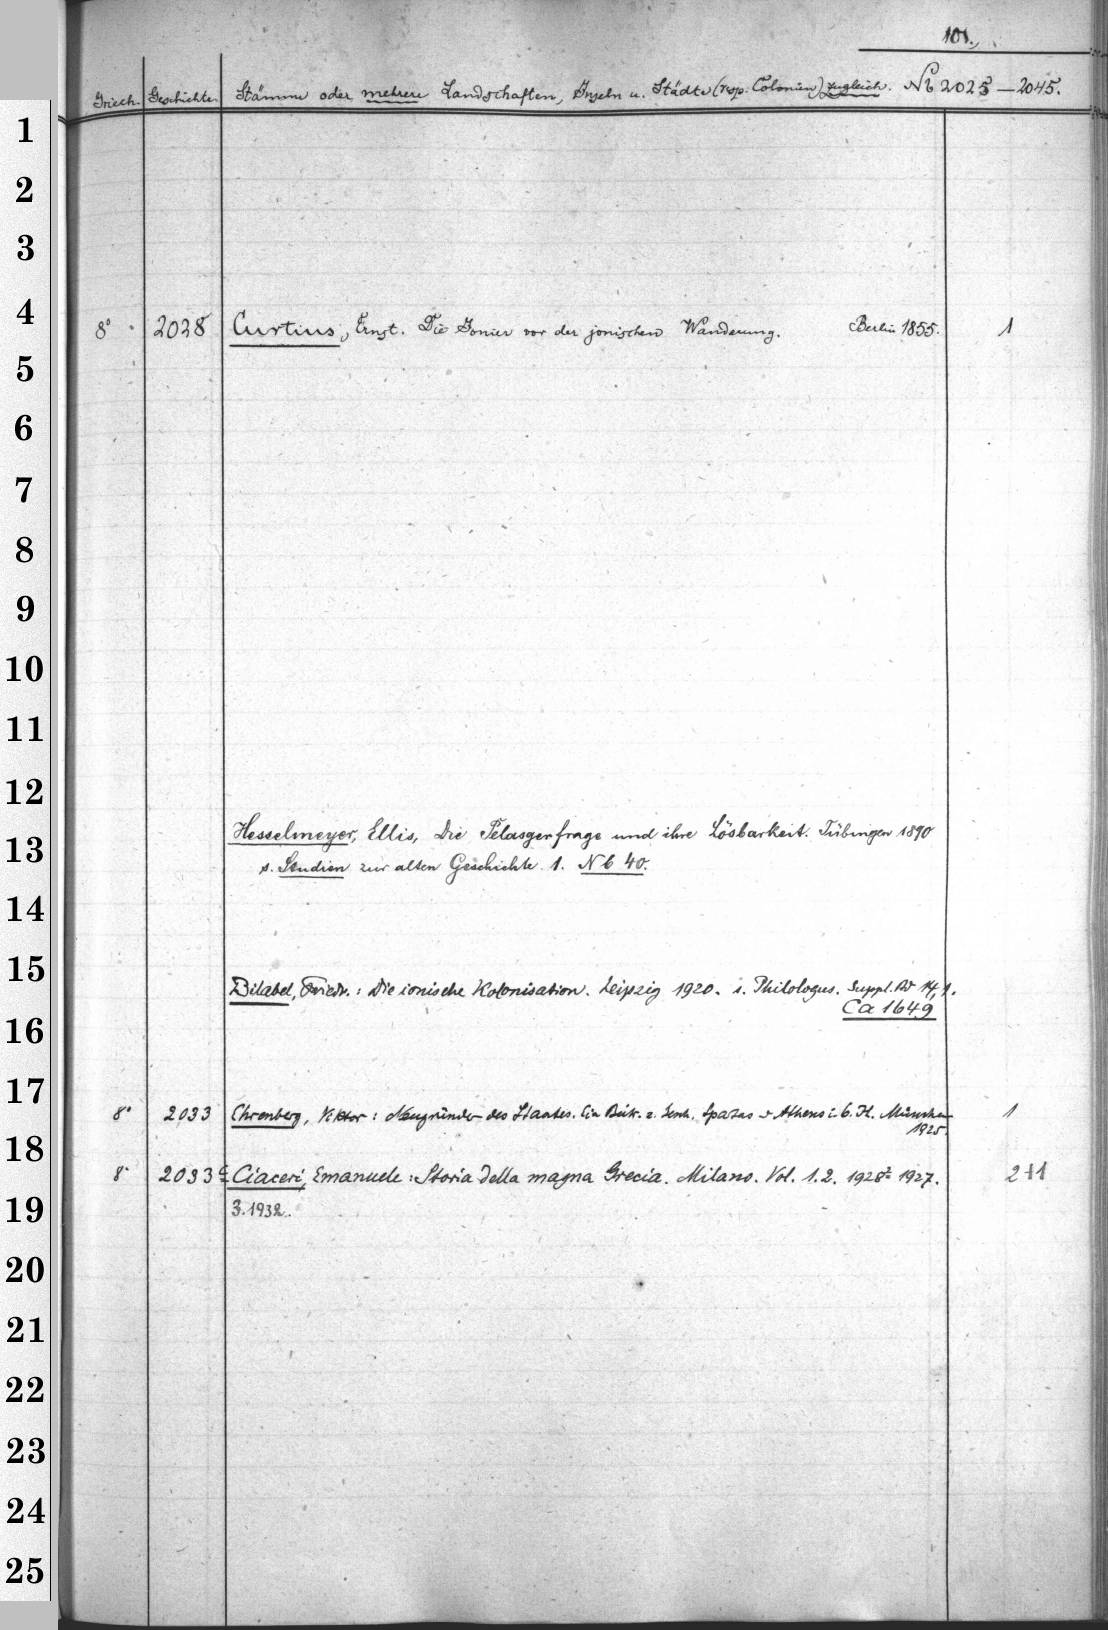 101.
Griech. Geschichte. Stämme oder mehrere Landschaften, Inseln u. Städte (resp. Colonien) zugleich. Nb 2025—2045.
1
2
3
4
8° 2028 Curtius, Ernst. Die Ionier vor der jonischen Wanderung. Berlin 1855. 1
5
6
7
8
9
10
11
12
Hesselmeyer, Ellis, Die Pelasgerfrage und ihre Lösbarkeit. Tübingen 1890
13
s. Studien zur alten Geschichte. 1. Nb 40.
14
15
Bilabel, Friedr.: Die ionische Kolonisation. Leipzig 1920. i. Philologus. Suppl. Bd 14,1.
Ca 1649
16
17
8° 2033 Ehrenberg, Viktor: Neugründer des Staates. Ein Beitr. z. Gesch. Spartas u Athens i. 6. Jl. München
1925.
18
8° 2033c Ciaceri, Emanuele: Storia della magna Grecia. Milano. Vol. 1.2. 1928 1927. 2+1
19
3.1932.
20
21
22
23
24
25